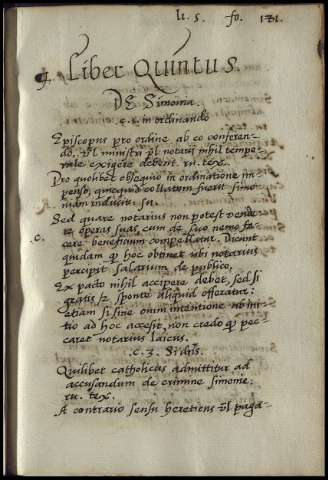 li. 5. fo. 121.
Liber Quintus.
DE Simonia.
c. 1. in ordinando
Episcopus pro ordine ab eo conferen-
do, vl ministri vl notarij nihil tempo-
rale exigere debent. ru. tex.
Pro quolibet obsequio in ordinatione im-
penso, quicquid collatum fuerit simo-
niam inducit. su.
Sed quare notarius non potest vende-
re operas suas, cum de suo nemo fa-
C. cere beneficium compellatur. Dicunt
quidam q hoc obtinet ubi notarius
percipit salarium de publico.
Ex pacto nihil accipere debet, sed si
gratis sponte aliquid offeratur:
etiam si sine omni intentione ab ini-
tio ad hoc accesit, non credo q pec-
caret notarius laicus.
.c. 3. Si dñs.
Quilibet catholicus admittitur ad
accusandum de crimine simonie:
ru. tex.
A contrario sensu hereticus vl paga-